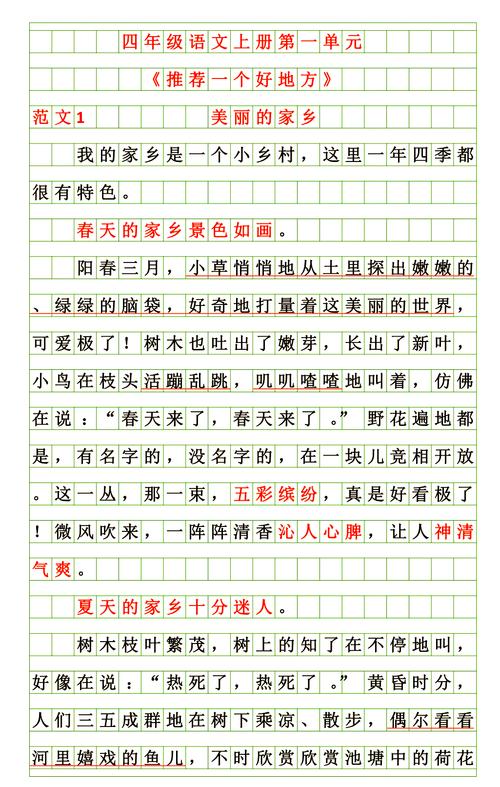 四年级语文上册第一单元
《推荐一个好地方》
范文1 美丽的家乡
我的家乡是一个小乡村，这里一年四季都
很有特色。
春天的家乡景色如画。
阳春三月，小草悄悄地从土里探出嫩嫩的
、绿绿的脑袋，好奇地打量着这美丽的世界，
可爱极了！树木也吐出了嫩芽，长出了新叶，
小鸟在枝头活蹦乱跳，叽叽喳喳地叫着，仿佛
在说：“春天来了，春天来了。”野花遍地都
是，有名字的，没名字的，在一块儿竞相开放
。这一丛，那一束，五彩缤纷，真是好看极了
！微风吹来，一阵阵清香沁人心脾，让人神清
气爽。
夏天的家乡十分迷人。
树木枝叶繁茂，树上的知了在不停地叫，
好像在说：“热死了，热死了。”黄昏时分，
人们三五成群地在树下乘凉、散步，偶尔看看
河里嬉戏的鱼儿，不时欣赏欣赏池塘中的荷花